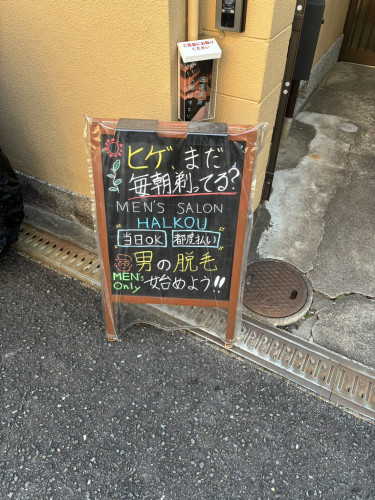 ご自由にお取り
ください
ヒゲ、まだ
毎朝剃ってる?
MEN'S SALON
"HALKOU"
当日OK 都度払い
男の脱毛
MEN's
Only
始めよう!!